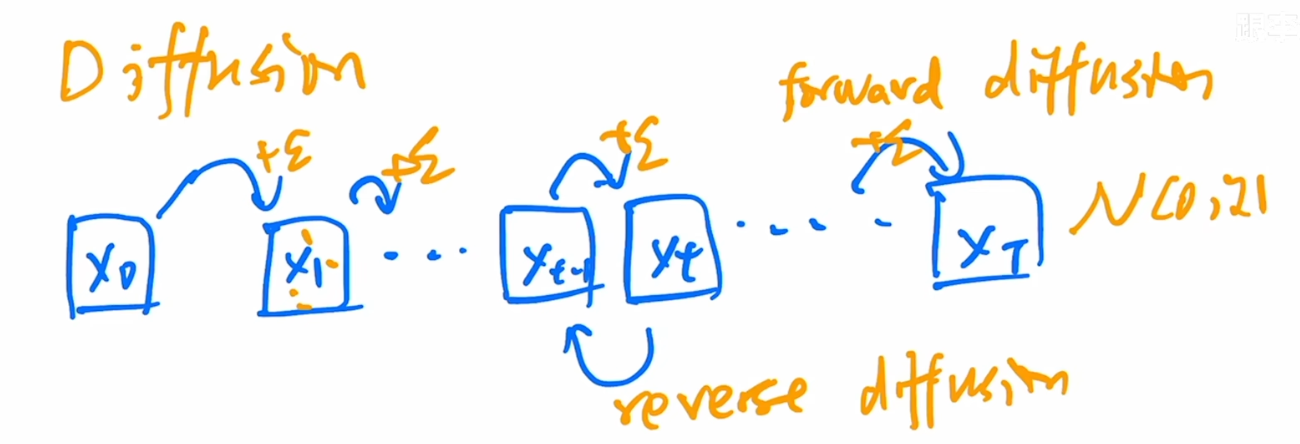 Diffusion
forward diffusion
+ε +ε +ε +ε
x₀ x₁ ... xₜ₋₁ xₜ ..... x_T N(0,I)
reverse diffusion